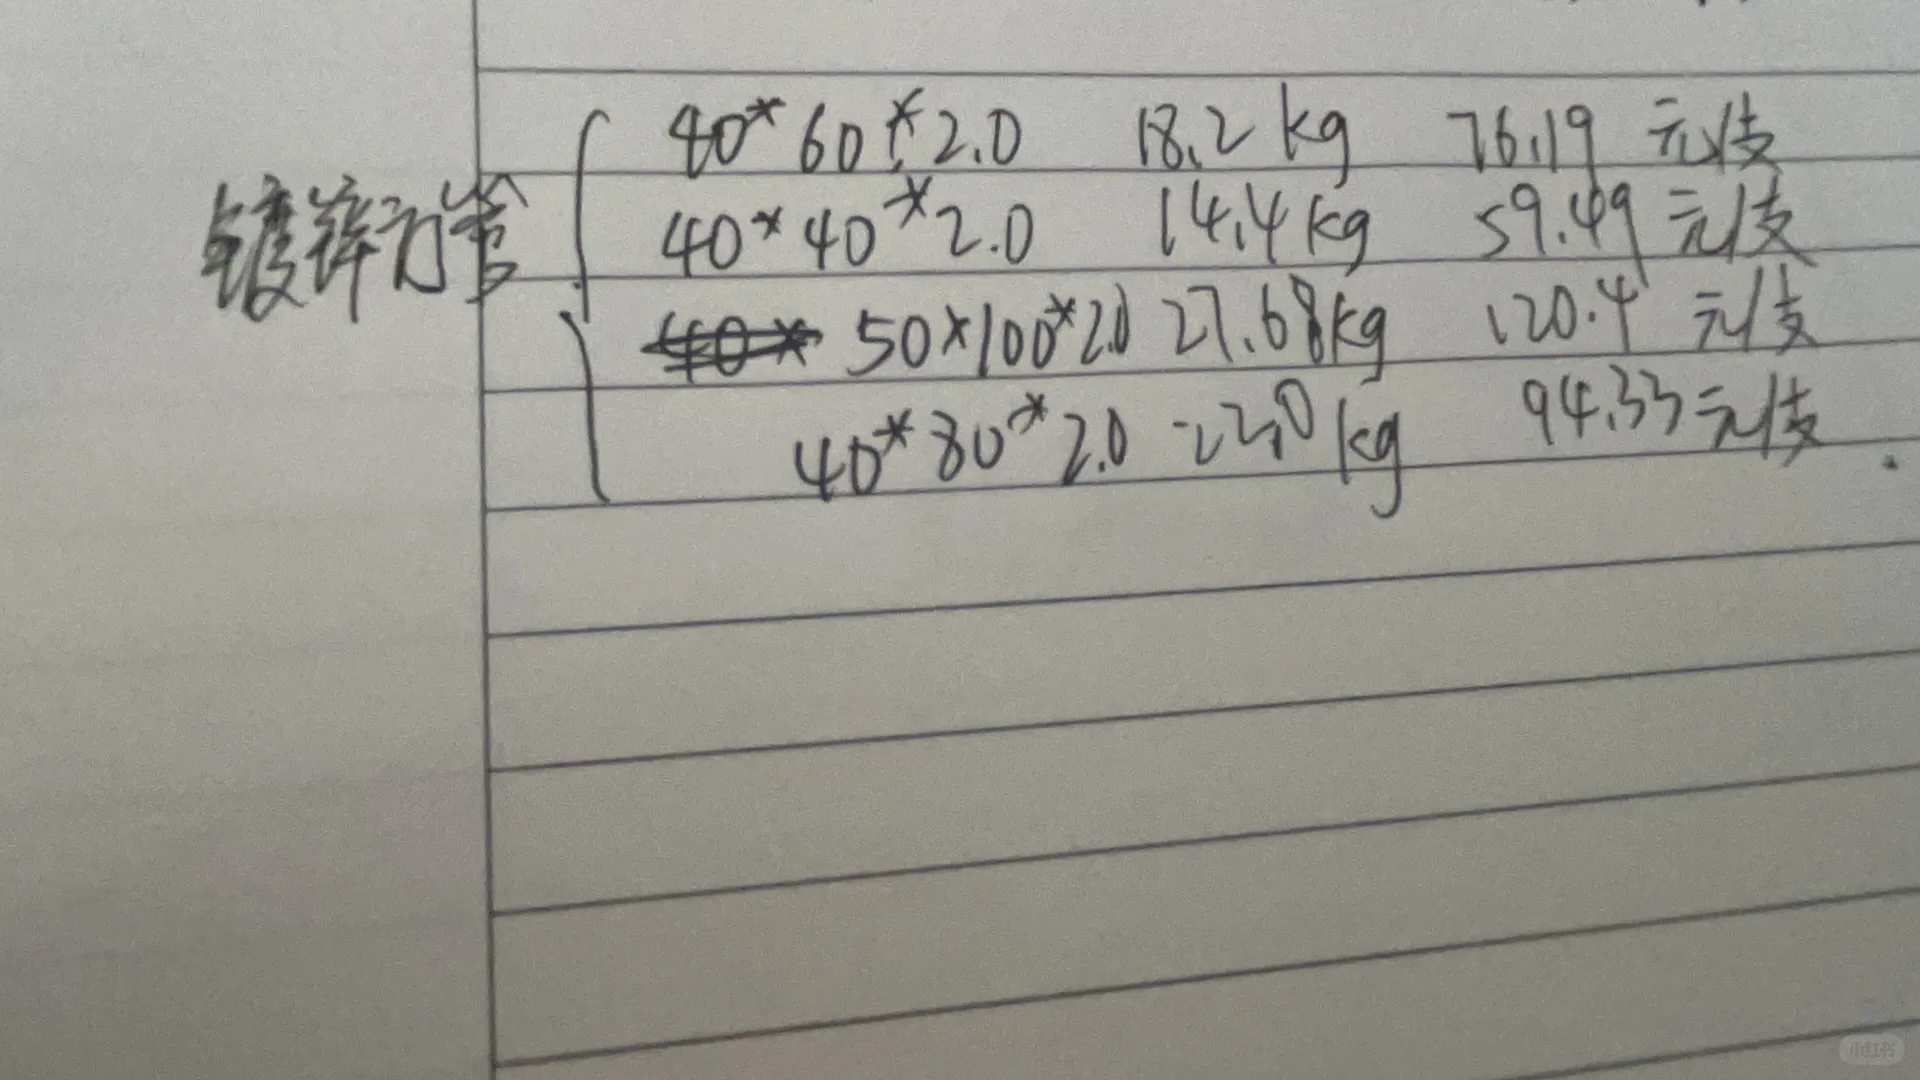 镀锌方管
40*60*2.0 18.2kg 76.19元/支
40*40*2.0 14.4kg 59.49元/支
50*100*2.0 27.68kg 120.4元/支
40*80*2.0 22.0kg 94.33元/支
小红书